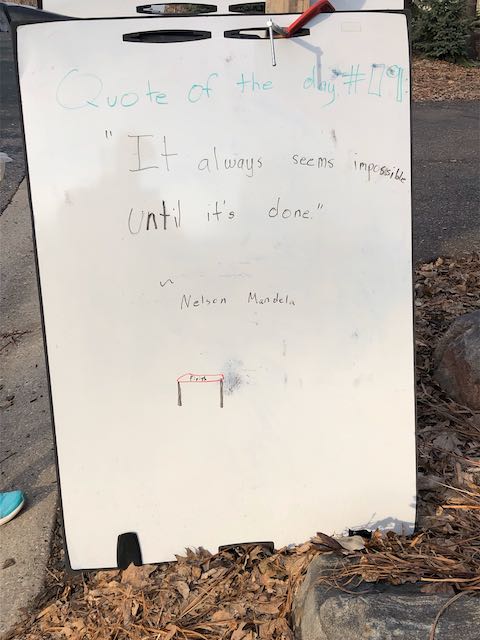 Quote of the day #19:
"It always seems impossible
until it's done."
~ Nelson Mandela
Finish